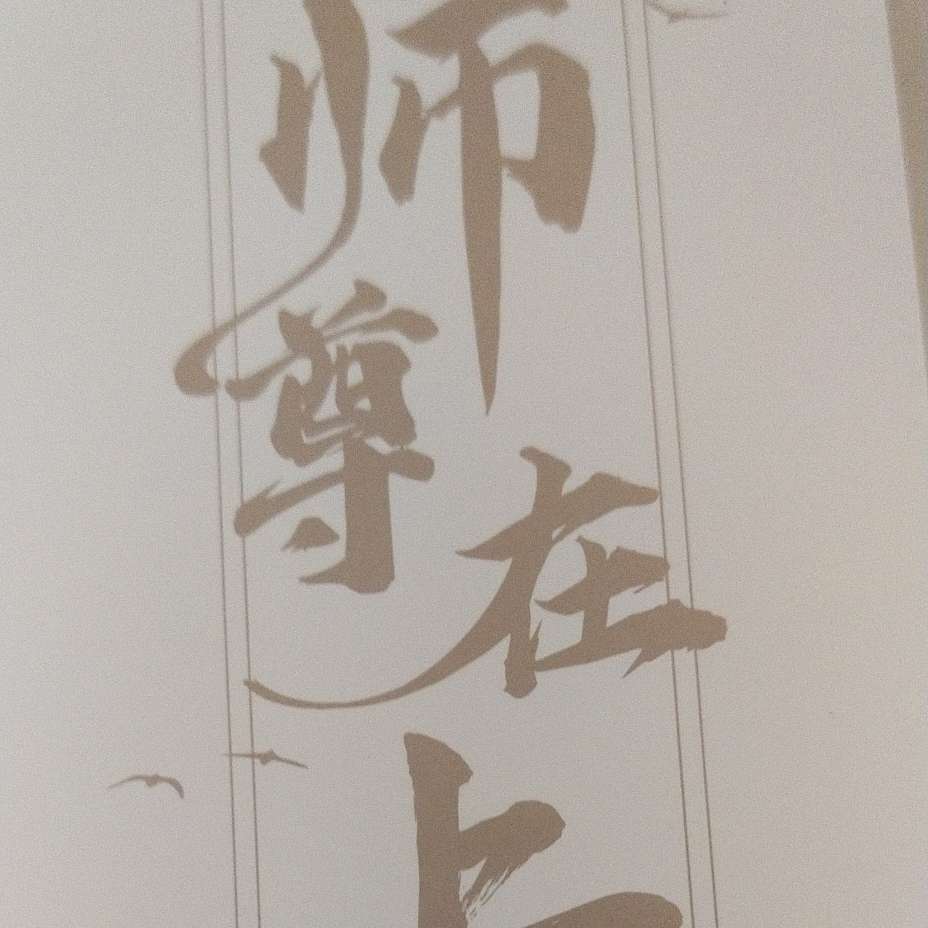 师尊在上